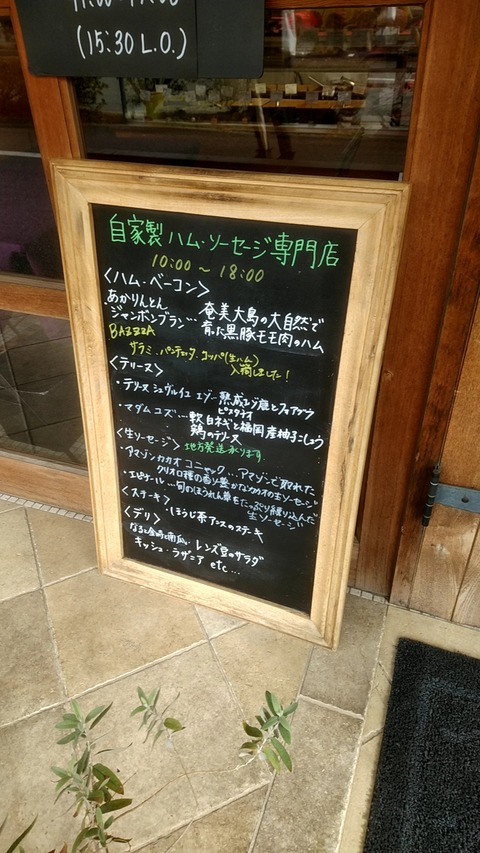 (15:30 L.O.)
自家製 ハム・ソーセージ専門店
10:00 〜 18:00
〈ハム・ベーコン〉
あかりんとん
ジャンボンブラン… 奄美大島の大自然で
育った黒豚モモ肉のハム
BAZZA
サラミ・パンチェッタ・コッパ(生ハム)
入荷しました!
〈テリーヌ〉
・テリーヌ シュヴルイユ エゾー 熟成エゾ鹿とフォアグラ
ピスタチオ
・マダム コズ… 軟白ネギと福岡産柚子こしょう
鶏のテリーヌ
〈生ソーセージ〉 地方発送承ります
・アマゾンカカオ コニャック…アマゾンで取れた
クリオロ種の香り豊かなカカオの生ソーセージ
・エピナール…旬のほうれん草をたっぷり練り込んだ
生ソーセージ
〈ステーキ〉
・ほうじ茶アンスのステーキ
〈デリ〉
なると金時と南瓜・レンズ豆のサラダ
キッシュ・ラザニア etc…